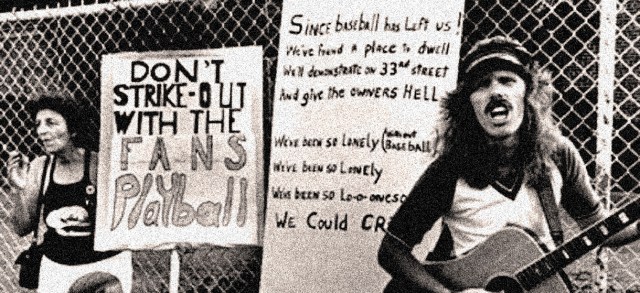 DON'T
STRIKE-OUT
WITH THE
FANS
Playball
SINCE baseball has Left us!
We've found a place to dwell
We'll demonstrate on 33rd street
And give the owners HELL
We've been so Lonely (without Baseball
We've been so Lonely
We've been so Lo-o-oneso
WE Could CR